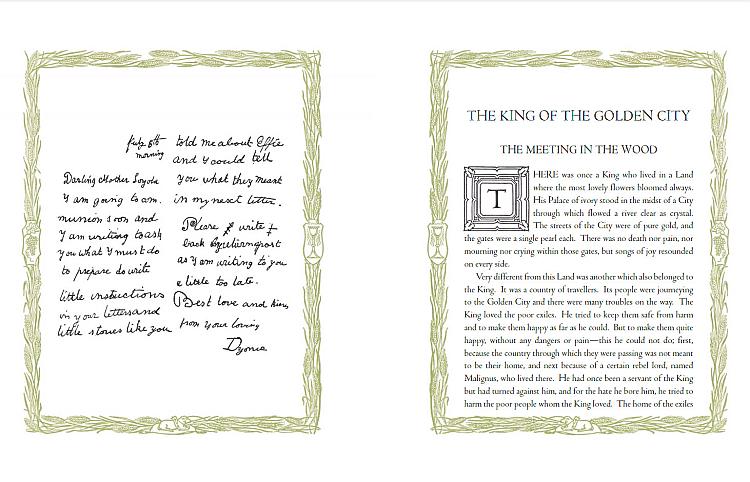 morning
Darling Mother Loyola
I am going to com.
munion soon and
I am writing to ask
you what I must do
to prepare do write
little instructions
in your letters and
little stories like you
told me about Effie
and I could tell
you what they meant
in my next letter.
Please write
back by
as I am writing to you
a little too late.
Best love and kiss
from your loving
THE KING OF THE GOLDEN CITY
THE MEETING IN THE WOOD
THERE was once a King who lived in a Land
where the most lovely flowers bloomed always.
His Palace of ivory stood in the midst of a City
through which flowed a river clear as crystal.
The streets of the City were of pure gold, and
the gates were a single pearl each. There was no death nor pain, nor
mourning nor crying within those gates, but songs of joy resounded
on every side.
Very different from this Land was another which also belonged to
the King. It was a country of travellers. Its people were journeying
to the Golden City and there were many troubles on the way. The
King loved the poor exiles. He tried to keep them safe from harm
and to make them happy as far as he could. But to make them quite
happy, without any dangers or pain—this he could not do; first,
because the country through which they were passing was not meant
to be their home, and next because of a certain rebel lord, named
Malignus, who lived there. He had once been a servant of the King
but had turned against him, and for the hate he bore him, he tried to
harm the poor people whom the King loved. The home of the exiles